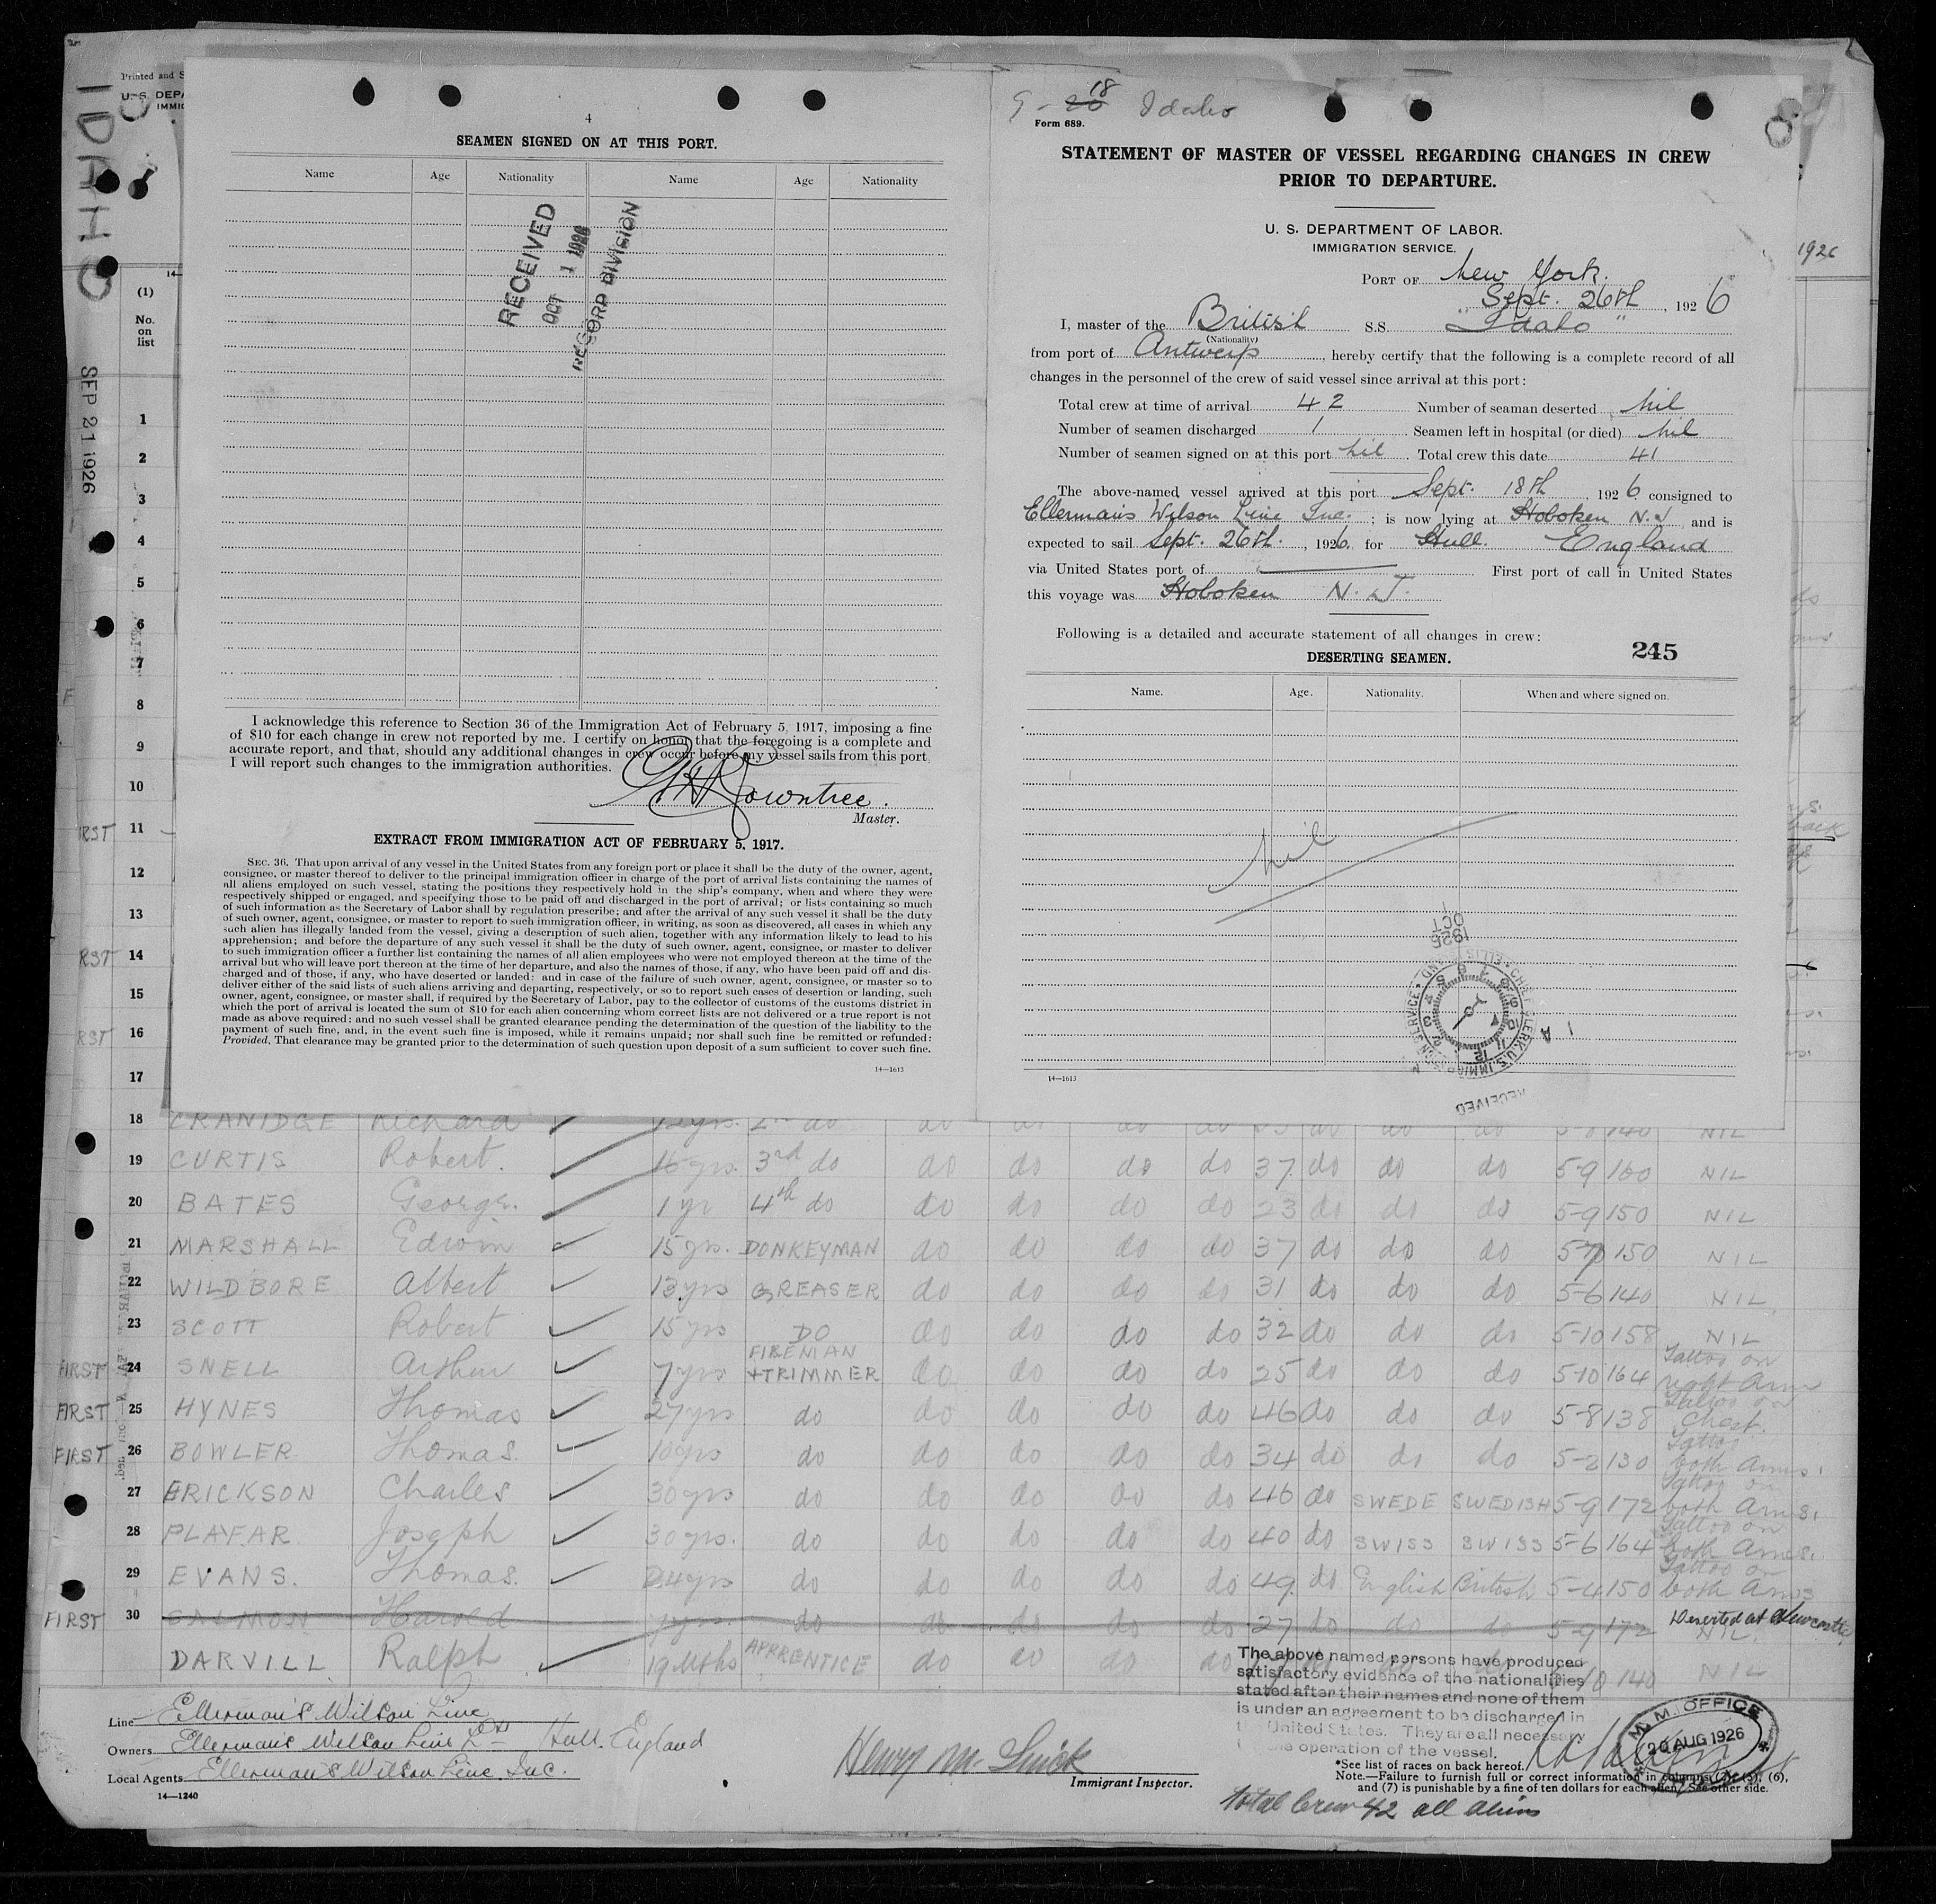 IDAHO
SEP 21 1926
Printed and S
U. S. DEPA
IMMIG
(1)
No.
on
list
1
2
3
4
5
6
7
8
9
10
RST 11
12
13
RST 14
15
RST 16
17
4
SEAMEN SIGNED ON AT THIS PORT.
Name Age Nationality Name Age Nationality
RECEIVED
OCT 1 1926
RECORD DIVISION
I acknowledge this reference to Section 36 of the Immigration Act of February 5, 1917, imposing a fine
of $10 for each change in crew not reported by me. I certify on honor that the foregoing is a complete and
accurate report, and that, should any additional changes in crew occur before my vessel sails from this port
I will report such changes to the immigration authorities.
Rowntree.
Master.
EXTRACT FROM IMMIGRATION ACT OF FEBRUARY 5, 1917.
SEC. 36. That upon arrival of any vessel in the United States from any foreign port or place it shall be the duty of the owner, agent,
consignee, or master thereof to deliver to the principal immigration officer in charge of the port of arrival lists containing the names of
all aliens employed on such vessel, stating the positions they respectively hold in the ship's company, when and where they were
respectively shipped or engaged, and specifying those to be paid off and discharged in the port of arrival; or lists containing so much
of such information as the Secretary of Labor shall by regulation prescribe; and after the arrival of any such vessel it shall be the duty
of such owner, agent, consignee, or master to report to such immigration officer, in writing, as soon as discovered, all cases in which any
such alien has illegally landed from the vessel, giving a description of such alien, together with any information likely to lead to his
apprehension; and before the departure of any such vessel it shall be the duty of such owner, agent, consignee, or master to deliver
to such immigration officer a further list containing the names of all alien employees who were not employed thereon at the time of the
arrival but who will leave port thereon at the time of her departure, and also the names of those, if any, who have been paid off and dis-
charged and of those, if any, who have deserted or landed; and in case of the failure of such owner, agent, consignee, or master so to
deliver either of the said lists of such aliens arriving and departing, respectively, or so to report such cases of desertion or landing, such
owner, agent, consignee, or master shall, if required by the Secretary of Labor, pay to the collector of customs of the customs district in
which the port of arrival is located the sum of $10 for each alien concerning whom correct lists are not delivered or a true report is not
made as above required; and no such vessel shall be granted clearance pending the determination of the question of the liability to the
payment of such fine, and, in the event such fine is imposed, while it remains unpaid; nor shall such fine be remitted or refunded:
Provided, That clearance may be granted prior to the determination of such question upon deposit of a sum sufficient to cover such fine.
14—1613
9 - 20 18 Idaho
Form 689.
STATEMENT OF MASTER OF VESSEL REGARDING CHANGES IN CREW
PRIOR TO DEPARTURE.
U. S. DEPARTMENT OF LABOR.
IMMIGRATION SERVICE.
1926
PORT OF New York.
Sept. 26th, 1926
I, master of the British S.S. "Idaho"
(Nationality)
from port of Antwerp, hereby certify that the following is a complete record of all
changes in the personnel of the crew of said vessel since arrival at this port:
Total crew at time of arrival 42 Number of seaman deserted Nil
Number of seamen discharged 1 Seamen left in hospital (or died) Nil
Number of seamen signed on at this port Nil. Total crew this date 41
The above-named vessel arrived at this port Sept. 18th, 1926 consigned to
Ellermans Wilson Line Inc.; is now lying at Hoboken N.J and is
expected to sail Sept. 26th., 1926. for Hull. England
via United States port of First port of call in United States
this voyage was Hoboken N.J.
Following is a detailed and accurate statement of all changes in crew:
DESERTING SEAMEN. 245
Name. Age. Nationality. When and where signed on.
Nil
OCT 1 1926
RECEIVED
14—1613
18 CRANIDGE Richard 2nd do do do do do do do do 5-8 140 NIL
19 CURTIS Robert. 16 yrs. 3rd do do do do do 37 do do do 5-9 160 NIL
20 BATES George. 1 yr 4th do do do do do 23 do do do 5-9 150 NIL
21 MARSHALL Edwin 15 yrs. DONKEYMAN do do do do 37 do do do 150 NIL
22 WILDBORE Albert 13 yrs GREASER do do do do 31 do do do 5-6 140 NIL
23 SCOTT Robert 15 yrs DO do do do do 32 do do do 5-10 158 NIL
FIRST 24 SNELL Arthur 7 yrs FIREMAN +TRIMMER do do do do 25 do do do 5-10 164 Tattoo on right Arm
FIRST 25 HYNES Thomas 27 yrs do do do do do 46 do do do 5-8 138 Tattoo on Chest.
FIRST 26 BOWLER Thomas. 10 yrs do do do do do 34 do do do 5-2 130 Tattoo both Arms.
27 ERICKSON Charles 30 yrs do do do do do 46 do SWEDE SWEDISH 5-9 172 Tattoo on both Arms.
28 PLAFAR Joseph 30 yrs. do do do do do 40 do SWISS SWISS 5-6 164 Tattoo on both Arms.
29 EVANS. Thomas. 24 yrs do do do do do 49 do English British 5-4 150 Tattoo on both Arms
FIRST 30 SALMON Harold do do do do do 27 do do do 5-9 172 NIL. Deserted at Newcastle
DARVILL Ralph 19 Mths APPRENTICE do do do do 140 NIL
The above named persons have produced
satisfactory evidence of the nationalities
stated after their names and none of them
is under an agreement to be discharged in
United States. They are all necessary
the operation of the vessel.
Line Ellerman's Wilson Line
Owners Ellerman's Wilson Line Ld Hull. England
Local Agents Ellerman's Wilson Line. Inc.
14—1240
Immigrant Inspector.
M. M. OFFICE
20 AUG 1926
*See list of races on back hereof.
Note.—Failure to furnish full or correct information in columns (2), (5), (6),
and (7) is punishable by a fine of ten dollars for each alien. See other side.
Total Crew 42 all aliens